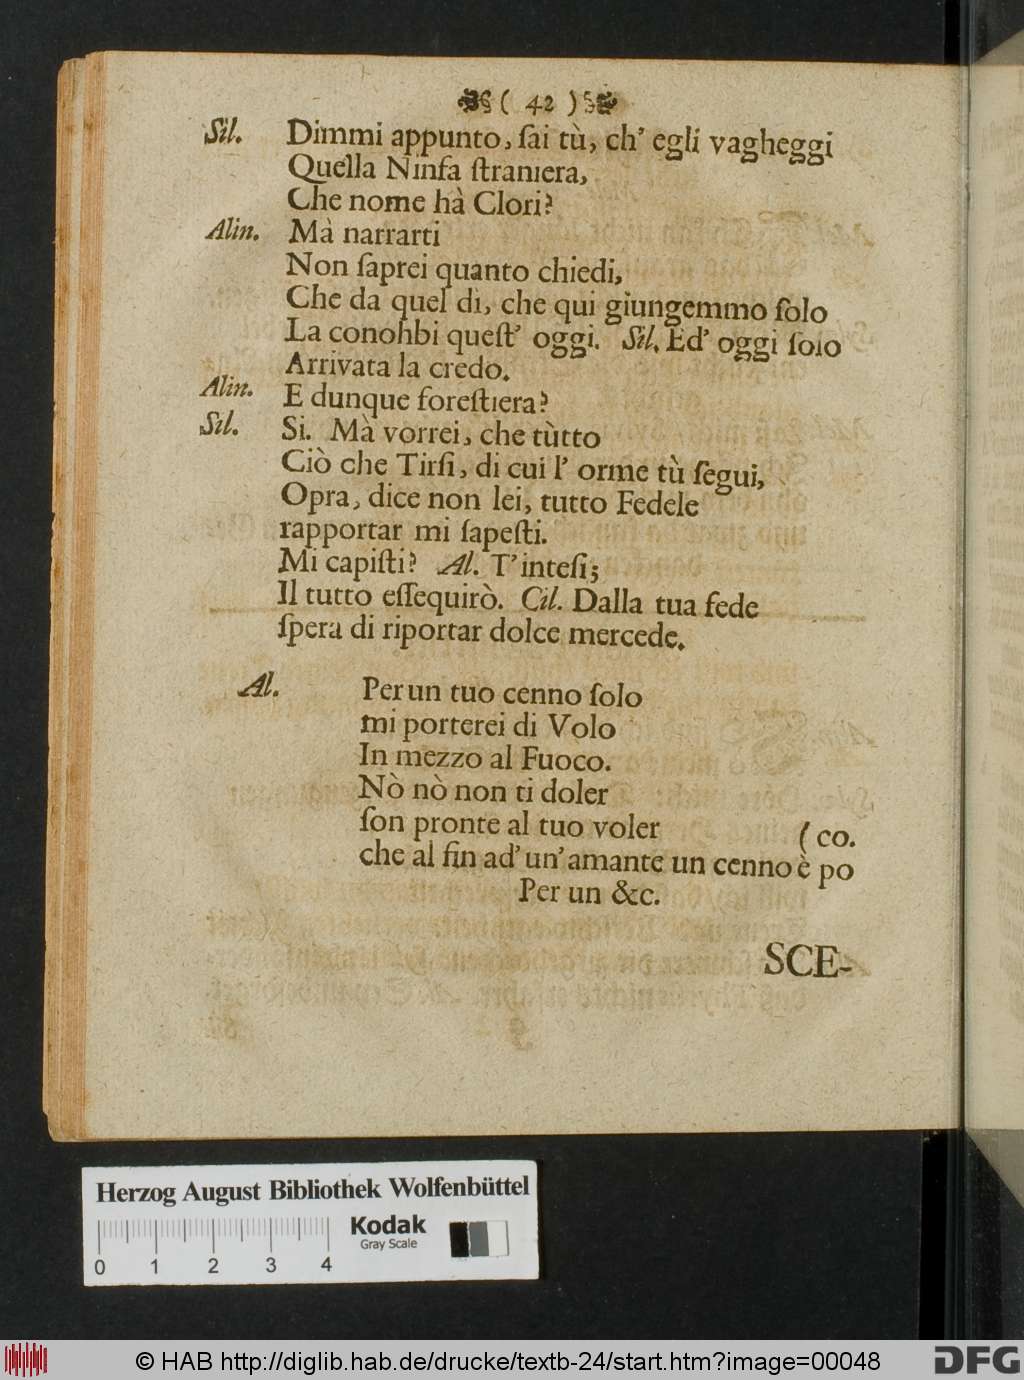 ( 42 )
Sil. Dimmi appunto, ſai tù, ch' egli vagheggi
Quella Ninfa ſtraniera,
Che nome hà Clori?
Alin. Mà narrarti
Non ſaprei quanto chiedi,
Che da quel di, che qui giungemmo ſolo
La conohbi queſt' oggi. Sil. Ed' oggi ſolo
Arrivata la credo.
Alin. E dunque foreſtiera?
Sil. Si. Mà vorrei, che tùtto
Ciò che Tirſi, di cui l' orme tù ſegui,
Opra, dice non lei, tutto Fedele
rapportar mi ſapeſti.
Mi capiſti? Al. T' inteſi;
Il tutto eſſequirò. Cil. Dalla tua fede
ſpera di riportar dolce mercede.
Al. Per un tuo cenno ſolo
mi porterei di Volo
In mezzo al Fuoco.
Nò nò non ti doler
ſon pronte al tuo voler
( co.
che al fin ad' un' amante un cenno è po
Per un &c.
SCE-
Herzog August Bibliothek Wolfenbüttel
Kodak
Gray Scale
0 1 2 3 4
© HAB http://diglib.hab.de/drucke/textb-24/start.htm?image=00048
DFG